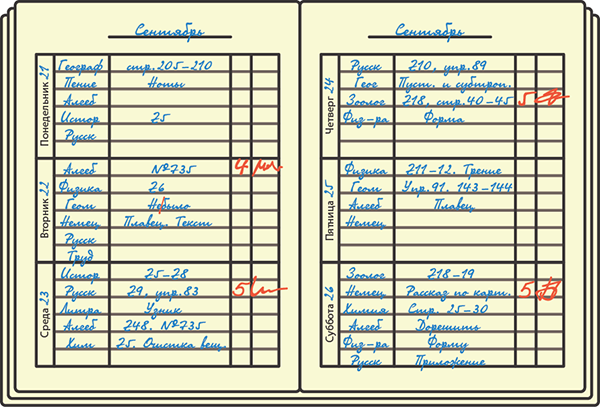 Сентябрь
Понедельник 21
Географ стр. 205-210
Пение Ноты
Алгеб
Истор 25
Русск
Вторник 22
Алгеб №735 4
Физика 26
Геом Не было
Немец Плавец. Текст
Русск
Труд
Среда 23
Истор 25-28
Русск 29. упр.83 5
Литра Узник
Алгеб 248. №735
Хим 25. Очистка вещ.
Сентябрь
Четверг 24
Русск 210. упр.89
Геог Пуст. и субтроп.
Зоолог 218. стр.40-45 5
Физ-ра Форма
Пятница 25
Физика 211-12. Трение
Геом Упр.91. 143-144
Алгеб Плавец
Немец
Суббота 26
Зоолог 218-19
Немец Рассказ по карт. 5
Химия Стр. 25-30
Алгеб Дорешить
Физ-ра Форму
Русск Приложение